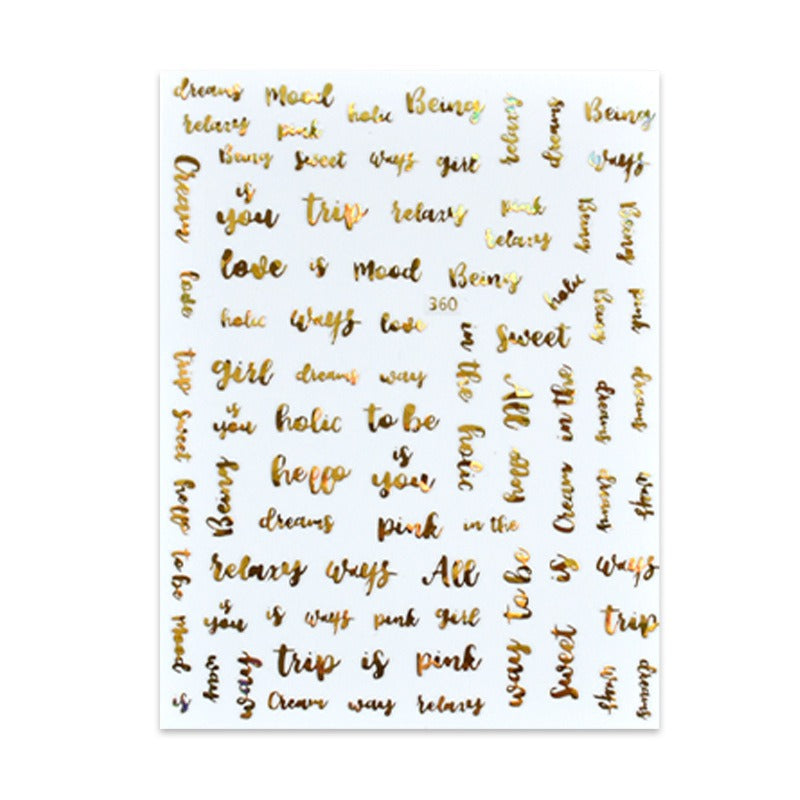 dreams Mood Being Being
holic
relaxy pink
Being sweet ways girl ways
relaxy
dreams
Cream
is
you trip relaxy pink
relaxy
Being
Being
love is Mood Being
holic
love
360
Being
pink
holic ways love sweet
in the
trip
girl dreams way
All
in the
dreams
dreams
sweet
is
you holic to be
holic
hello is
you
hello
Cream
dreams
ways
hello
Being
dreams pink in the
to be
relaxy ways All
way to be
is
ways
is
you is ways pink girl trip
Mood
is
way
way
trip is pink
sweet
ways
dreams
Cream way relaxy